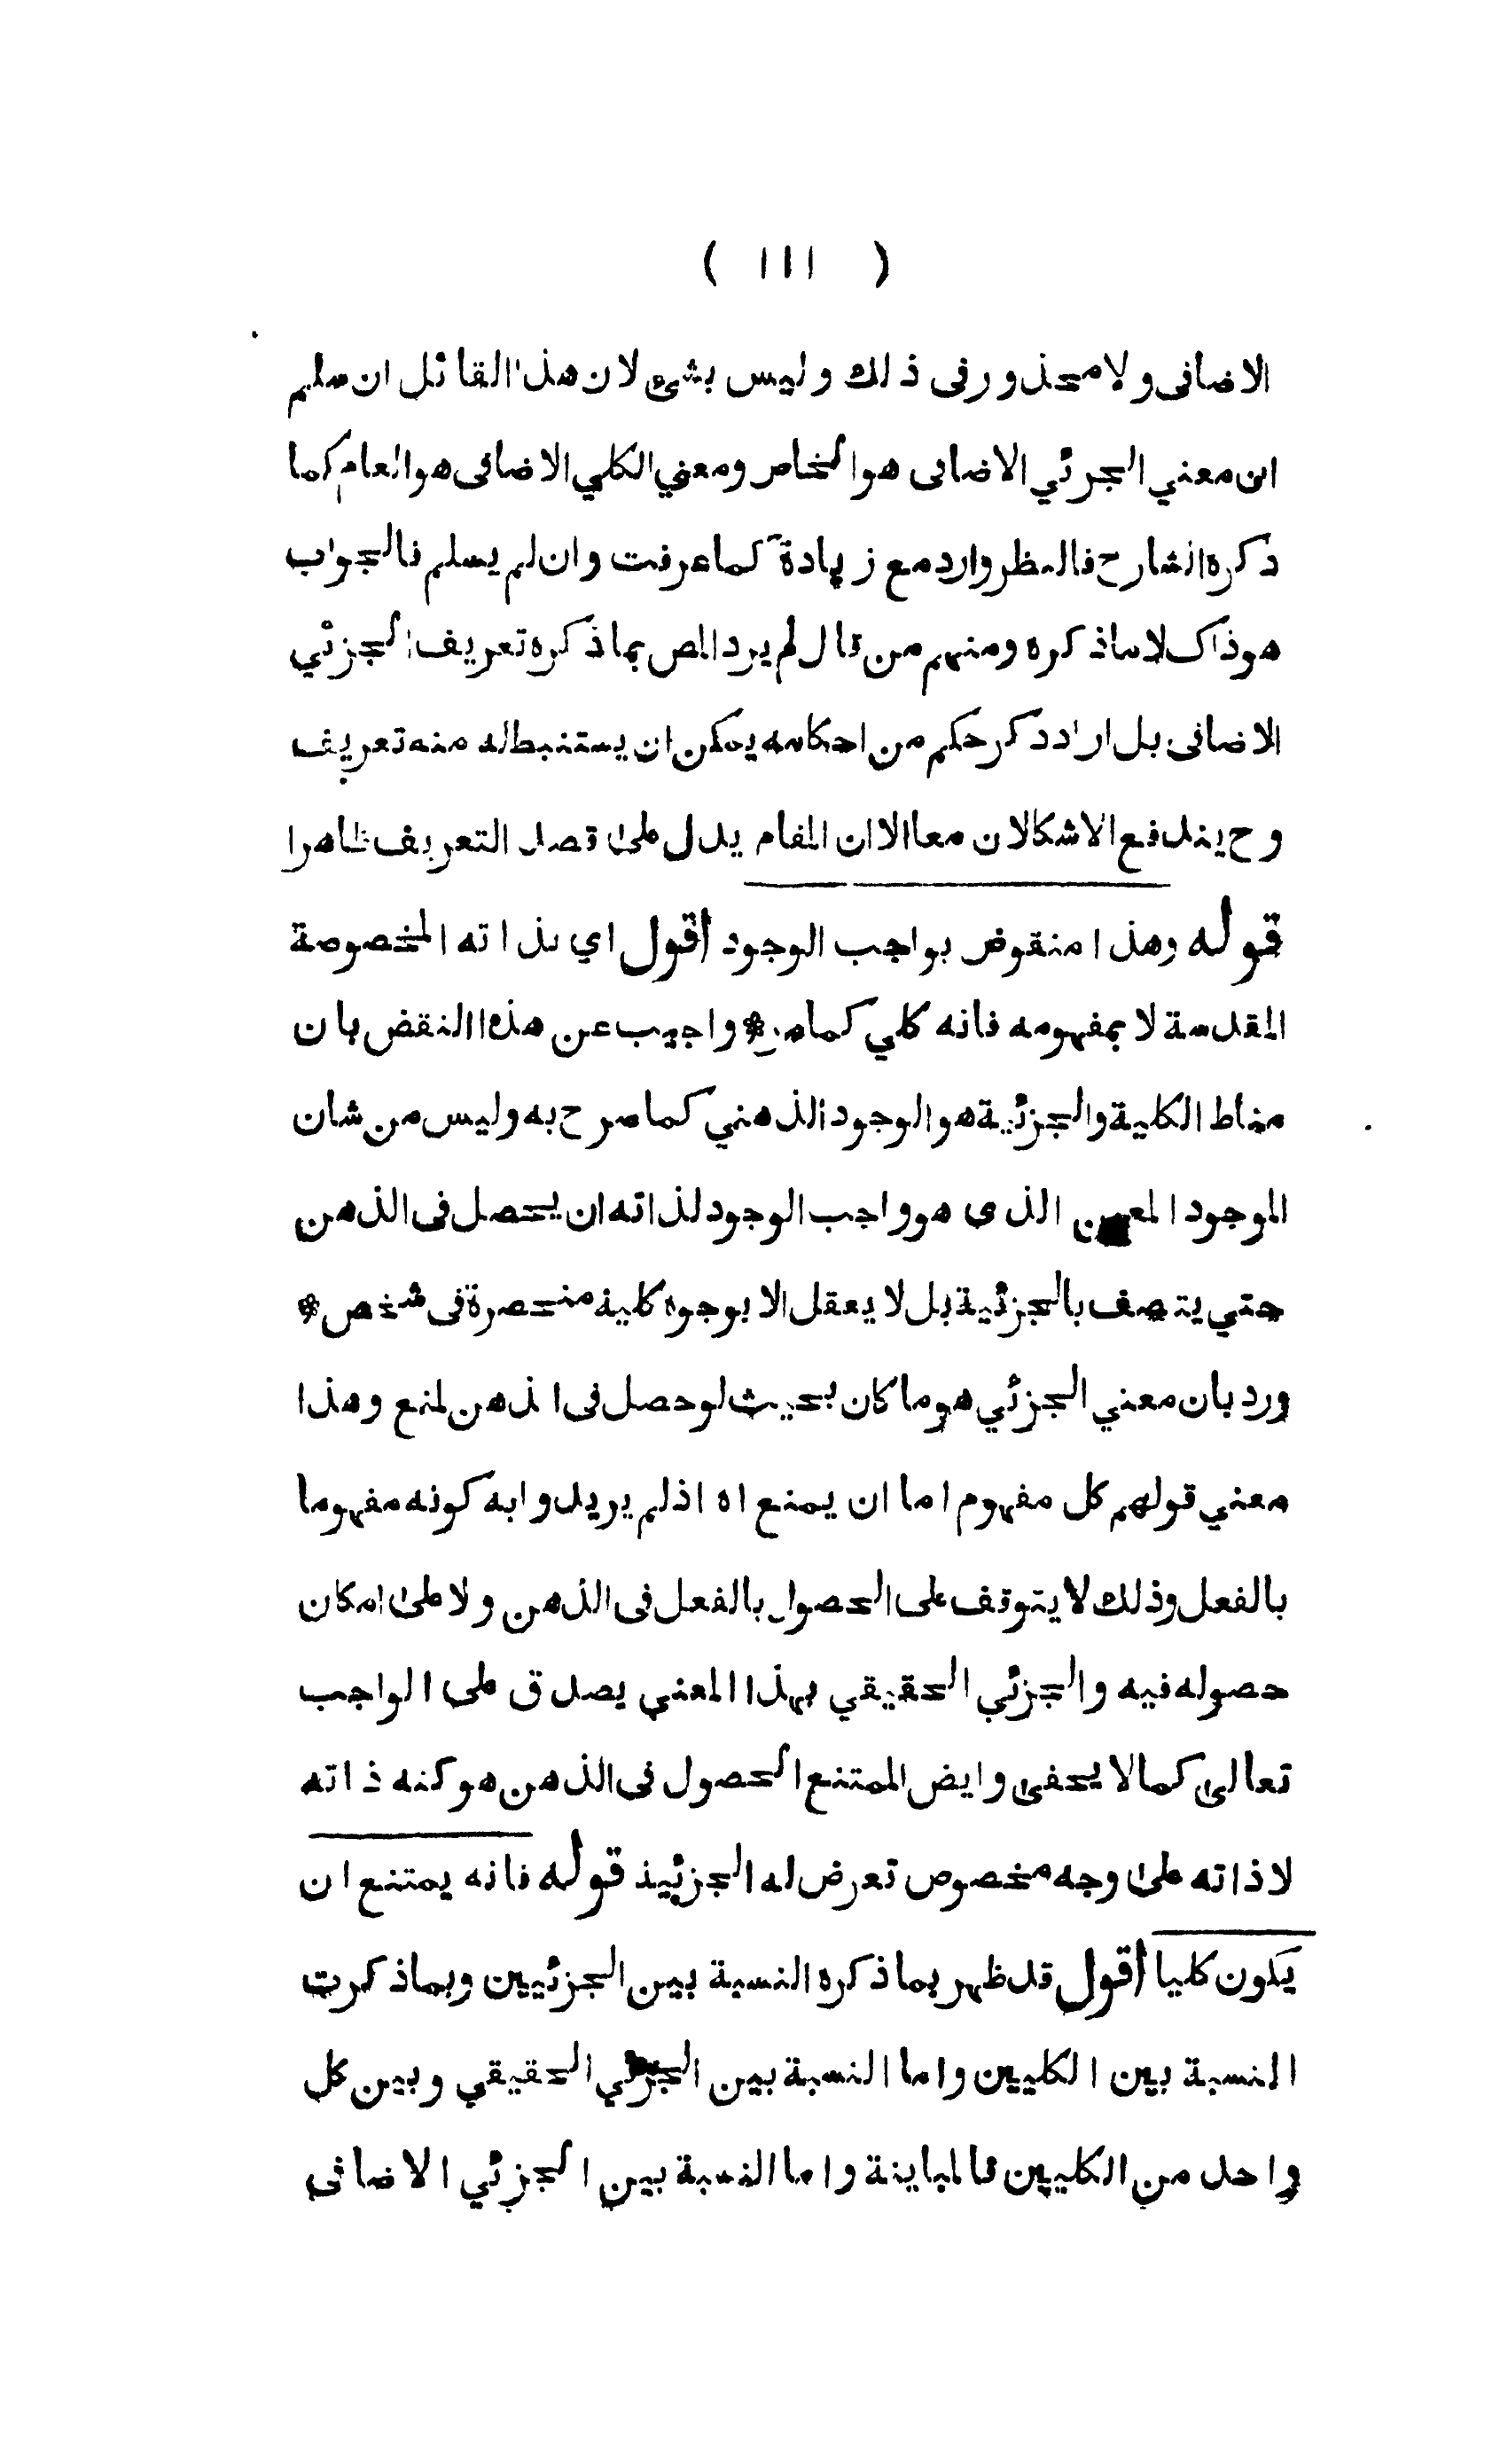 ( ١١١ )
الاضافى ولا محذور فى ذلك وليس بشئ لان هذا القائل ان سلم
ان معني الجزئي الاضافى هو الخاص ومعني الكلي الاضافى هو العام كما
ذكره الشارح فالنظر وارد مع زيادة كما عرفت وان لم يسلم فالجواب
هو ذاك لا ما ذكره ومنهم من قال لم يرد المص بما ذكره تعريف الجزئي
الاضافى بل اراد ذكر حكم من احكامه يمكن ان يستنبط له منه تعريف
وح يندفع الاشكالان معا الا ان المقام يدل على قصد التعريف ظاهرا
قوله وهذا منقوض بواجب الوجود اقول اي بذاته المخصوصة
المقدسة لا بمفهومه فانه كلي كما مر * واجيب عن هذا النقض بان
مناط الكلية والجزئية هو الوجود الذهني كما صرح به وليس من شان
الموجود المعين الذى هو واجب الوجود لذاته ان يحصل فى الذهن
حتي يتصف بالجزئية بل لا يعقل الا بوجوه كلية منحصرة فى شخص *
ورد بان معني الجزئي هو ما كان بحيث لو حصل فى الذهن لمنع وهذا
معني قولهم كل مفهوم اما ان يمنع اه اذ لم يريدوا به كونه مفهوما
بالفعل وذلك لا يتوقف على الحصول بالفعل فى الذهن ولا على امكان
حصوله فيه والجزئي الحقيقي بهذا المعني يصدق على الواجب
تعالى كما لا يخفى وايض الممتنع الحصول فى الذهن هو كنه ذاته
لا ذاته على وجه مخصوص تعرض له الجزئية قوله فانه يمتنع ان
يكون كليا اقول قد ظهر بما ذكره النسبة بين الجزئيين وبما ذكرت
النسبة بين الكليين واما النسبة بين الجزئي الحقيقي وبين كل
واحد من الكليين فالمباينة واما النسبة بين الجزئي الاضافى